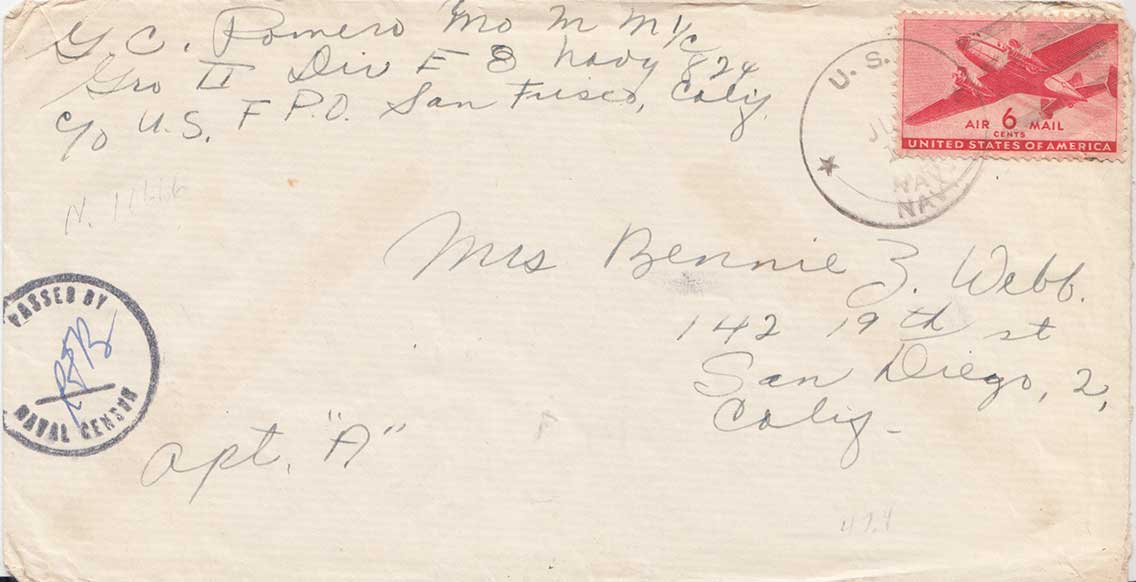 G. C. Romero Mo M M 1/c
Gro II Div E 8 Navy 824
c/o U.S. F P.O. San Frisco, Calif.
U. S.
NAV
NAV
AIR 6 MAIL
CENTS
UNITED STATES OF AMERICA
N. 11666
Mrs Bennie Z. Webb.
142 19th st
San Diego, 2,
Calif-
PASSED BY
NAVAL CENSOR
apt. "A"